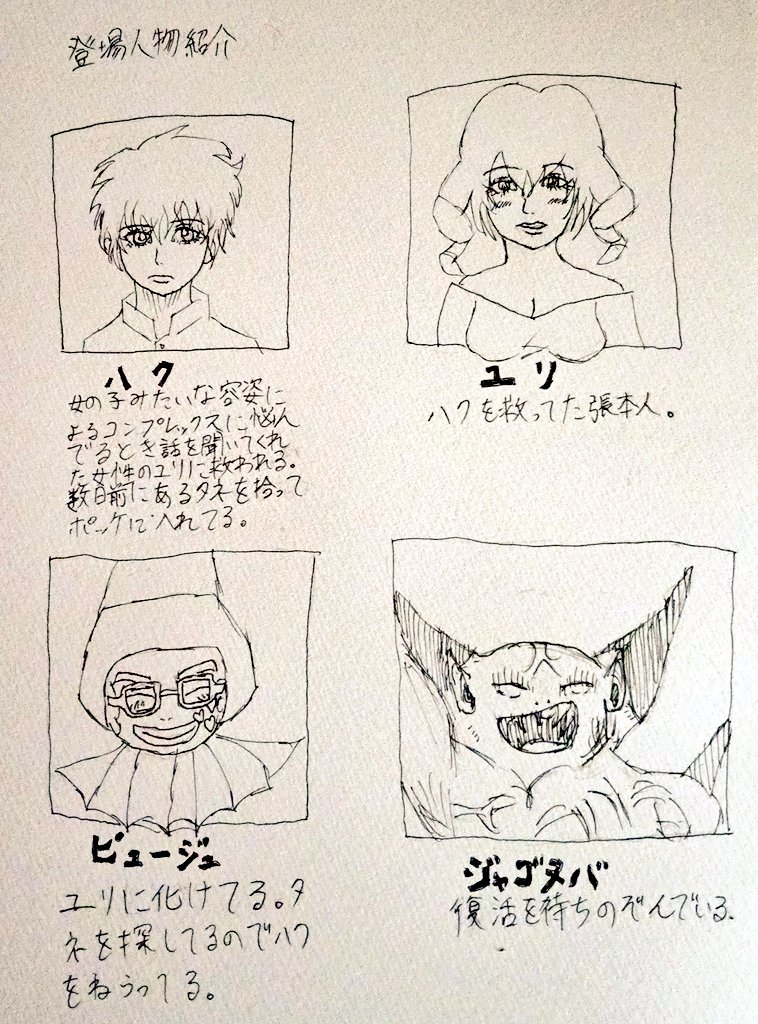 登場人物紹介
ハク
女の子みたいな容姿に
よるコンプレックスに悩ん
でるとき話を聞いてくれ
た女性のユリに救われる。
数日前にあるタネを拾って
ポッケに入れてる。
ユリ
ハクを救ってた張本人。
ビュージュ
ユリに化けてる。タ
ネを探してるのでハク
をねらってる。
ジャゴヌバ
復活を待ちのぞんでいる。